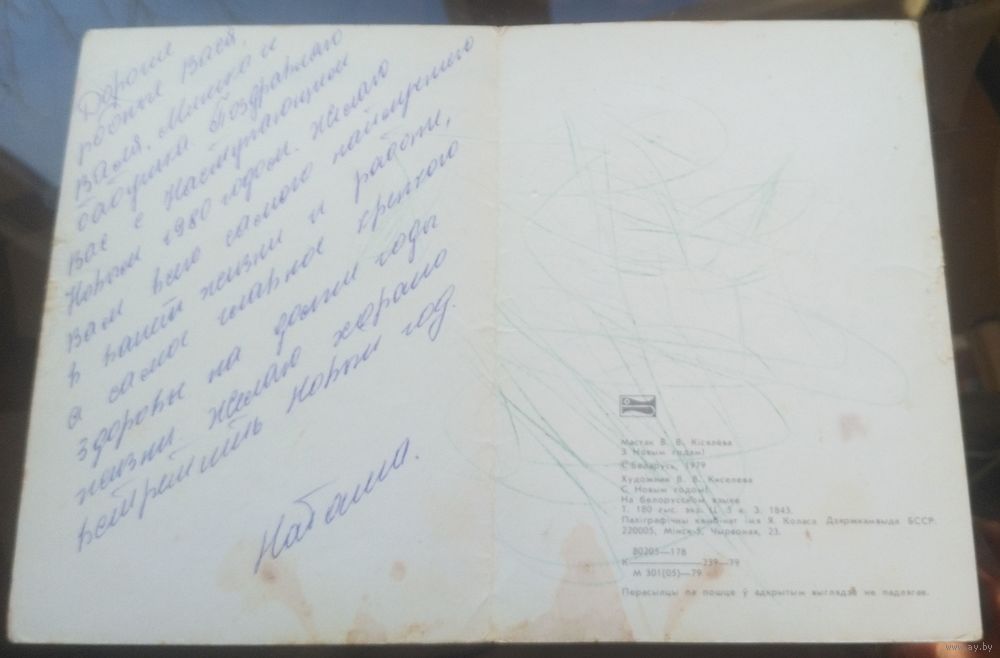 Дорогие
родные Вася,
Валя, Мишка и
бабушка. Поздравляю
Вас с Наступающим
Новым 1980 годом. Желаю
Вам всего самого найлучшего
в вашей жизни и работи,
а самое главное крепкого
здоровья на долгие годы
жизни. Желаю хорашо
встретить Новый год.
Наташа.
Мастак В. В. Кісялёва
З Новым годам!
© Беларусь, 1979
Художник В. В. Киселева
С Новым годом!
На белорусском языке
Т. 180 тыс. экз. Ц. 5 к. З. 1843.
Паліграфічны камбінат імя Я. Коласа Дзяржкамвыда БССР.
220005, Мінск-5, Чырвоная, 23.
80205—178
К 239—79
М 301(05)—79
Перасылцы па пошце ў адкрытым выглядзе не падлягае.
www.ay.by